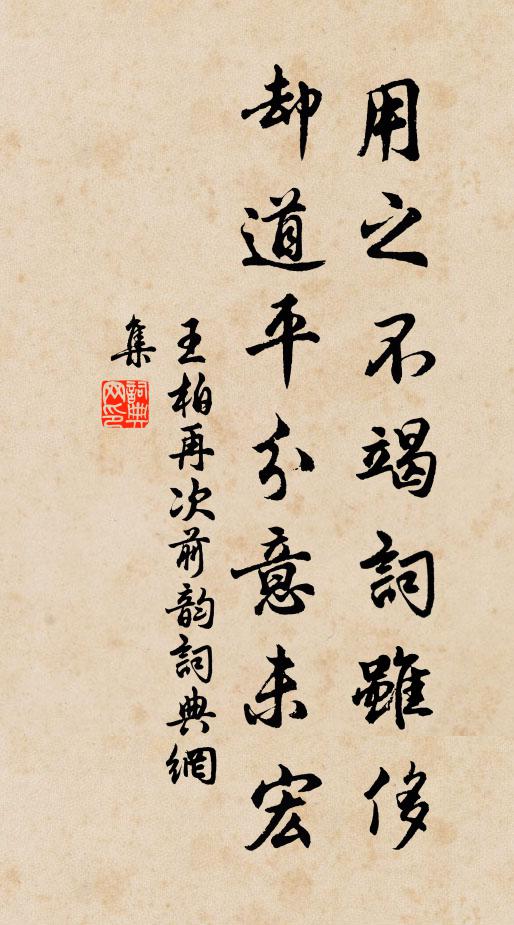 用之不竭詞雖侈
却道平分意未宏
王柏再次前韵詞典網
集
詞典
网印